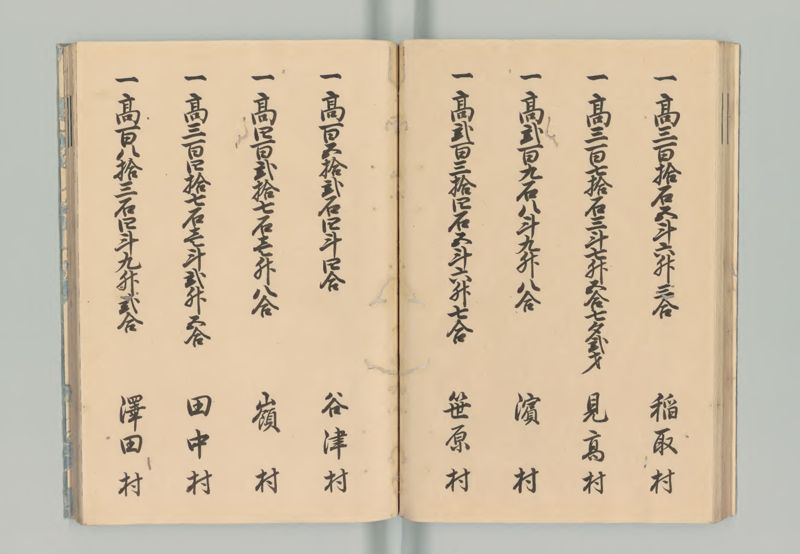 一高三百拾石五斗六升三合 稲取村
一高三百七拾石三斗七升五合七夕弐才 見高村
一高弐百九石八斗九升八合 濱村
一高弐百三拾四石五斗六升七合 笹原村
一高百五拾弐石四斗四合 谷津村
一高四百弐拾七石壱升八合 嶺村
一高三百四拾七石壱斗弐升五合 田中村
一高百八拾三石四斗九升弐合 澤田村